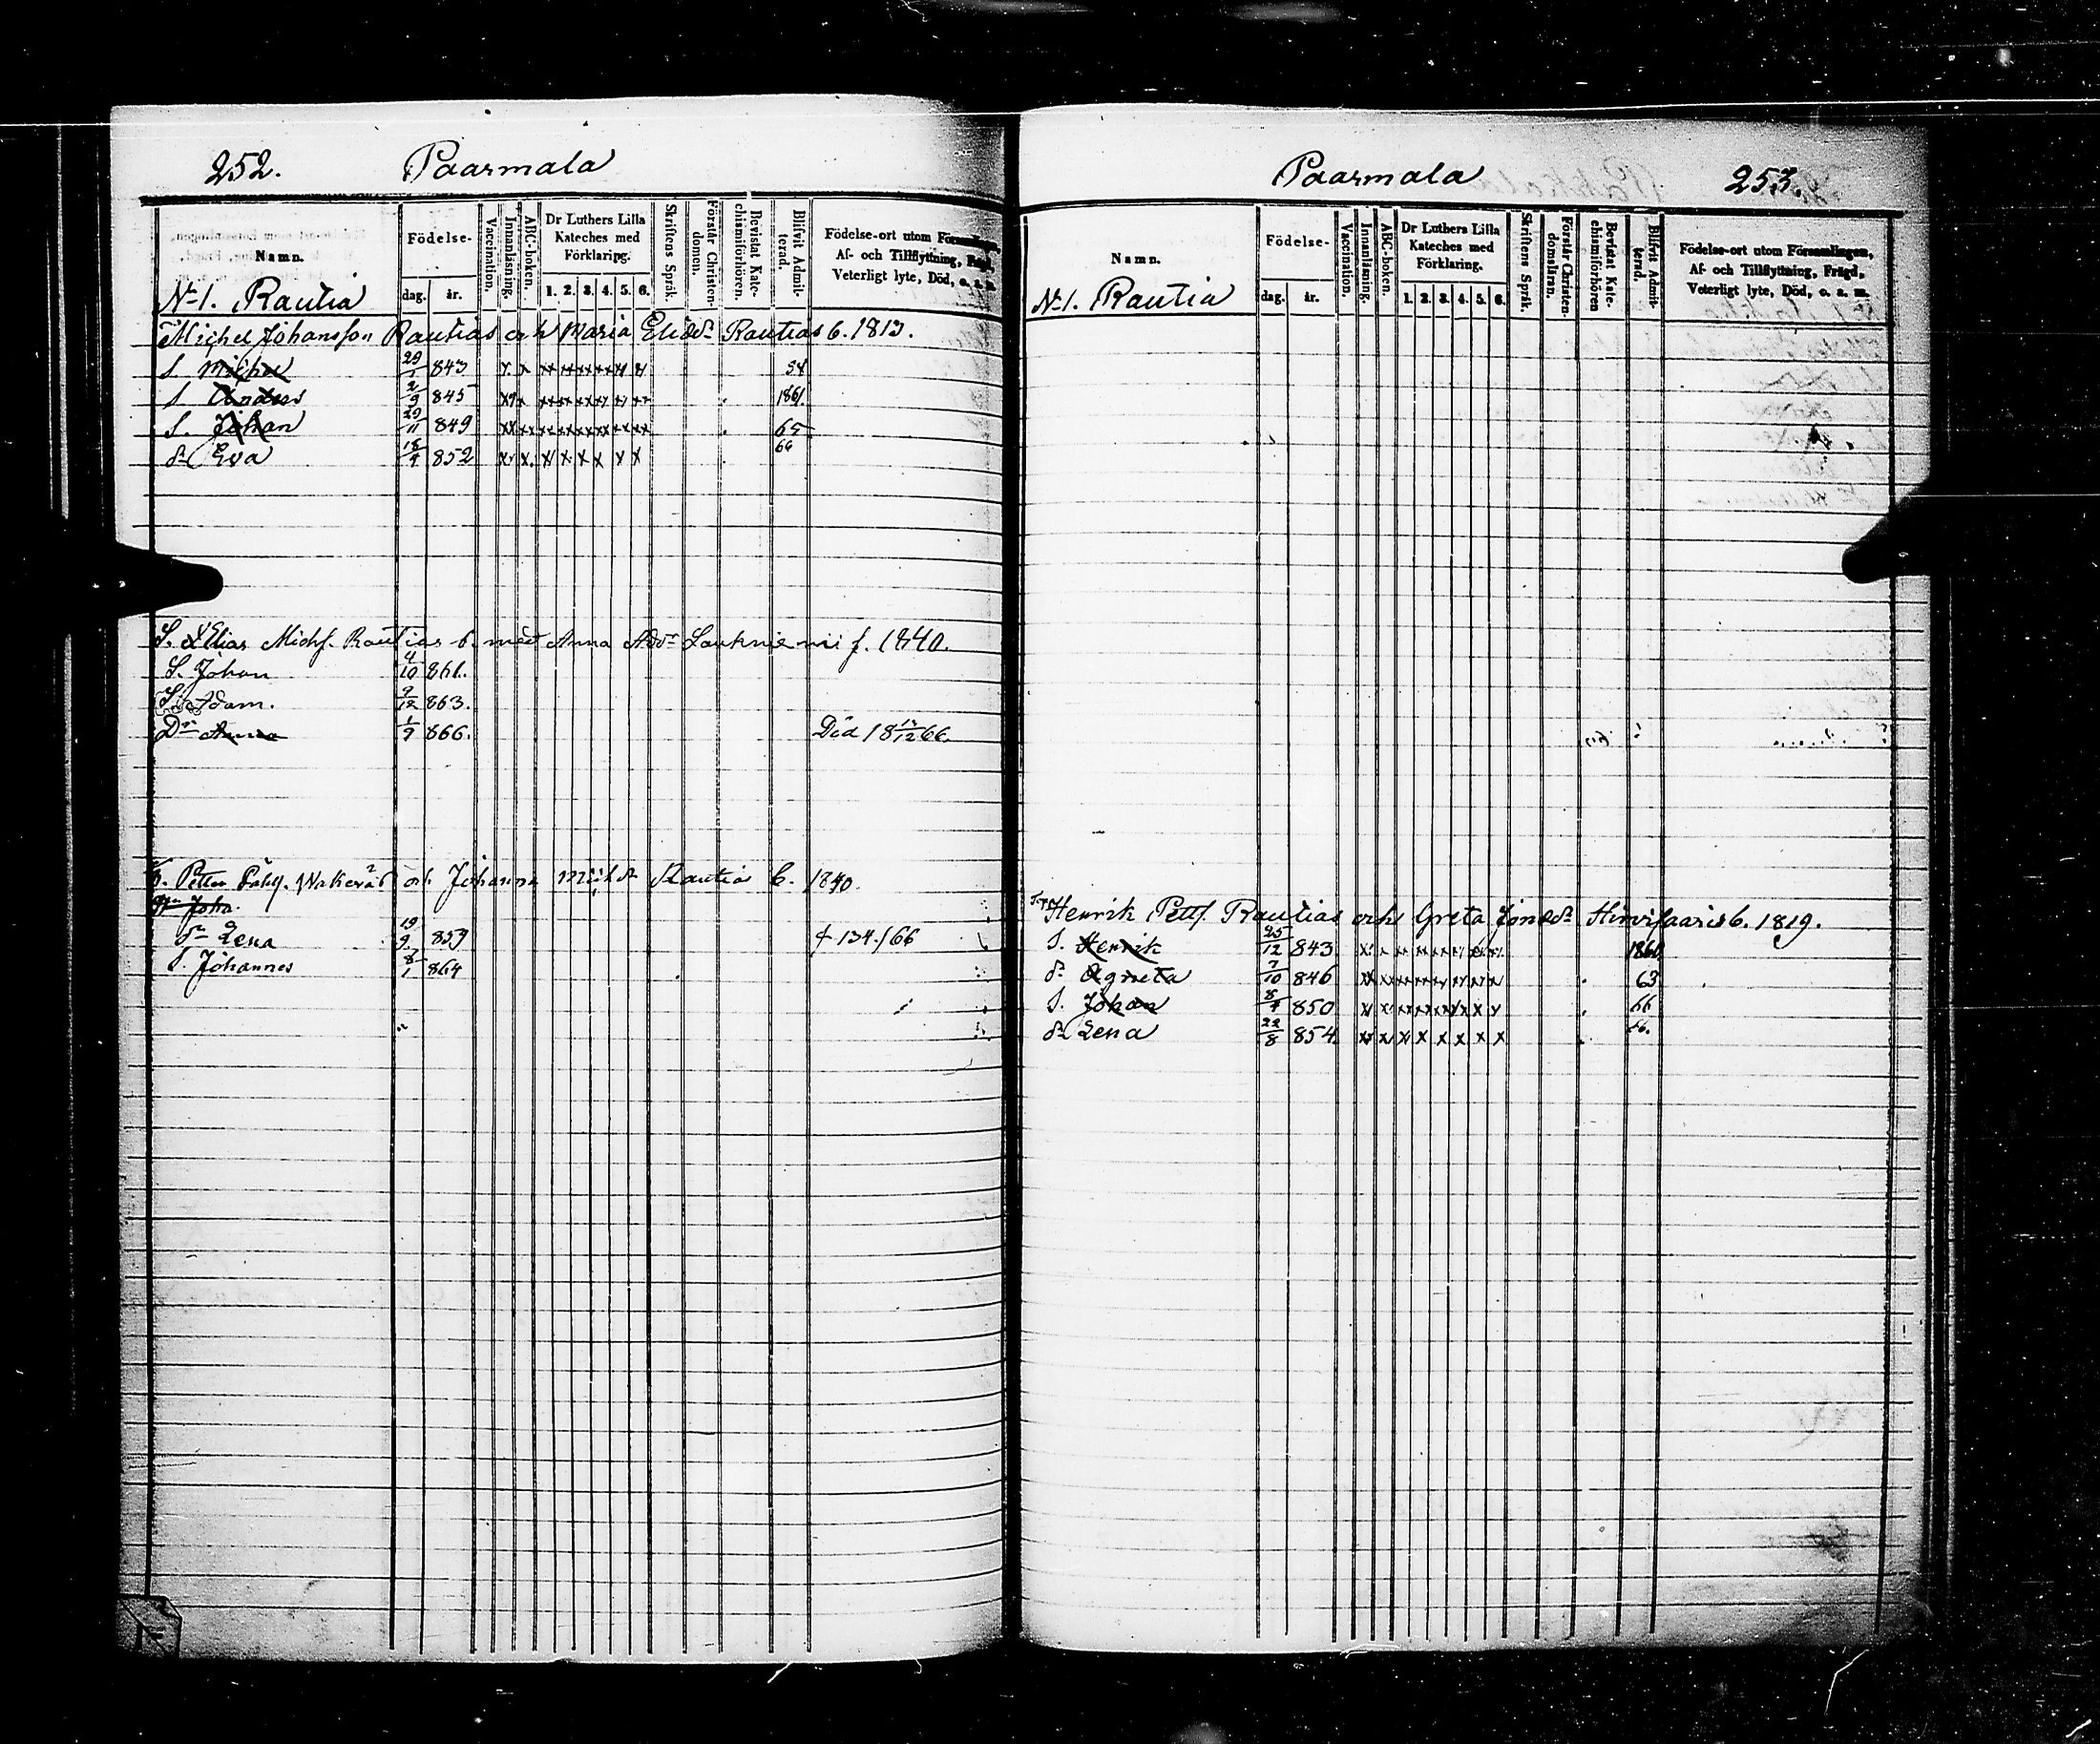 252. Paarmala
Namn.
Födelse-
dag. år.
Vaccination.
Innanläsning.
ABC-boken.
Dr Luthers Lilla Kateches med Förklaring.
1. 2. 3. 4. 5. 6.
Skriftens Språk.
Förstår Christen-domen.
Bevistat Kate-chismiförhören.
Blifvit Admit-terad.
Födelse-ort utom Församlingen,
Af- och Tillflyttning, Frägd,
Veterligt lyte, Död, o. a. m.
No 1. Rautia
Michel Johansson Rautias och Maria Eliædr Rautias b. 1813.
S Michel 29/1 843 x x xx xx xx xx x x 58
S Anders 2/9 845 xx x xx xx xx xx x xx 1861.
S. Johan 29/11 849 xx xx xx xx xx xx xx xx 65
dr Eva 18/4 852 x x x x x x x x 66
S. Elias Michs. Rautias b. med Anna Addr Laukniemi f. 1840.
S. Johan 4/10 861.
S. Adam. 9/12 863.
Dr Anna 1/9 866. Död 18 12/12 66.
Petter och Johanna Rautia b. 1840.
Joha.
Dr Lena 19/9 859 † 13 4./66
S. Johannes 8/1 864
Paarmala 253.
Namn.
Födelse-
dag. år.
Vaccination.
Innanläsning.
ABC-boken.
Dr Luthers Lilla Kateches med Förklaring.
1. 2. 3. 4. 5. 6.
Skriftens Språk.
Förstår Christen-domsläran.
Bevistat Kate-chismiförhören
Blifvit Admit-terad.
Födelse-ort utom Församlingen,
Af- och Tillflyttning, Frägd,
Veterligt lyte, Död, o. a. m.
No 1. Rautia
Henrik Petts. Rautias och Greta Jönædr Hirvisaaris b. 1819.
S. Henrik 25/12 843 x x xx xx xx x xx x 1861
dr Agneta 7/10 846 xx xx xx xx xx x x x 63
S. Johan 8/4 850 x x xx xx xx x x x 66
dr Lena 22/8 854 x x x x x x x x 66.